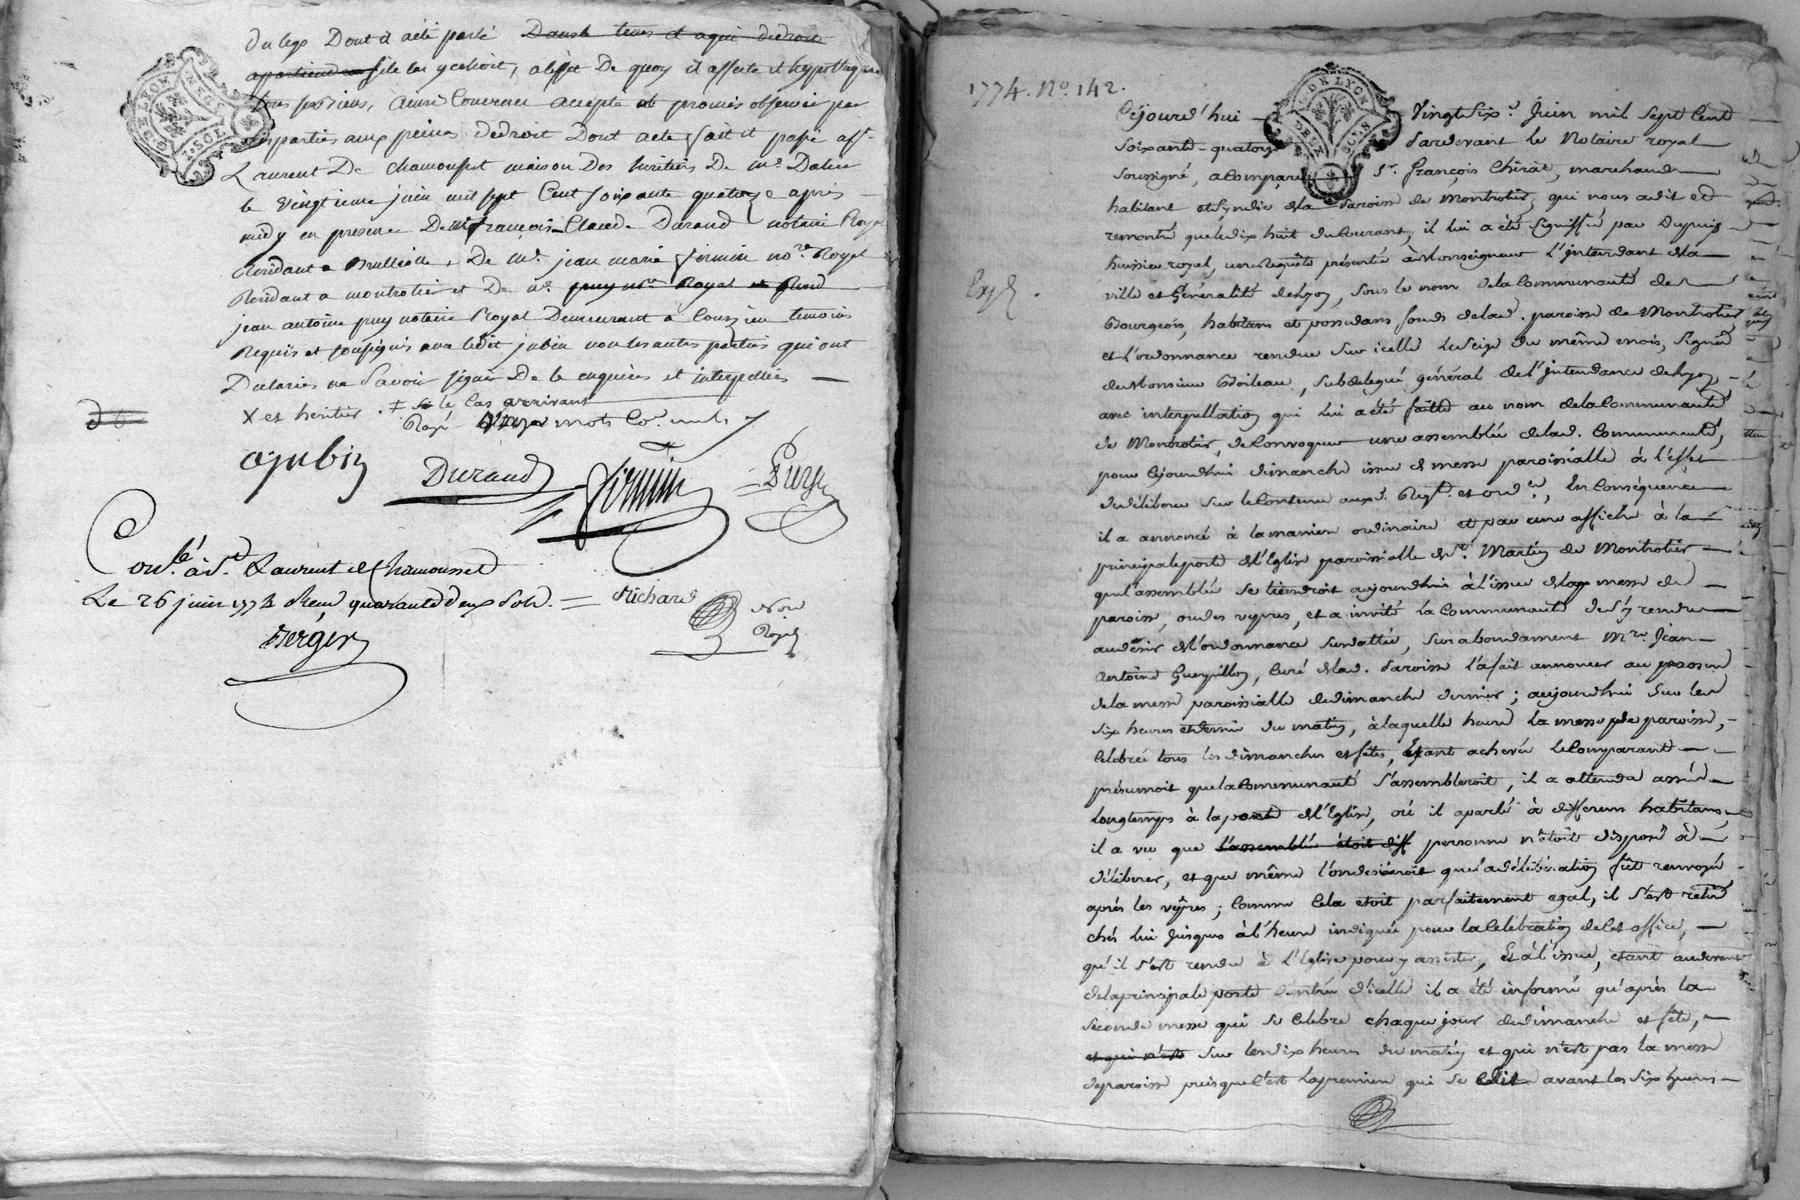 du legs Dont il a été parlé Dans le tems et a qui de droit
appartiendra si le cas y echoit, a l'effet De quoy il affecte et hyppotheque
tous ses biens, ainsi Convenu accepté et promis observer par
les parties aux peines De droit Dont acte fait et passé a St
Laurent De Chamousset maison Des heritiers De Me Dalin
le vingtieme juin mil sept Cent soixante quatorze après
midy en presence De Me françois Claude Durand notaire Royal
Résidant a Brullioles, De Me jean marie firmin nore Royal
Residant a montrotier et De Me puy nore Royal et Resid
jean antoine puy notaire Royal Demeurant a Courzieu temoins
Requis et soussignés avec ledit jubin non les autres parties qui ont
Declarées ne savoir signer De ce enquises et interpellées —
X et heritier . ‡ si le cas arrivant
Rayé mots Co. nuls
a jubin Durand firmin Puy
Conlé à St Laurent de Chamousset
Le 26 juin 1774 Reçu quarante deux sols. = Richard
Berger
Nore
Royal
GEN. DE LYON 1. SOL
1774. No. 142.
Expé .
G. DE LYON DEUX SOLS
Cejourd'hui Vingt Six. Juin mil Sept Cent
Soixante-quatorze Pardevant le Notaire royal
Soussigné, a Comparu Sr. François Chirat, marchand
habitant et Syndic de la Paroisse de Montrotier, qui nous a dit et
remontré que le dix huit du Courant, il lui a été Signiffié par Dupuis
huissier royal, une Requête présenté à Monseigneur L'Intendant de la
ville et Généralité de Lyon, Sous le nom de la Communauté des
Bourgeois, habitans et possedans fonds de lad. paroisse de Montrotier
et L'ordonnance rendue Sur icelle Le Seize du même mois, Signée
de Monsieur Boileau, Subdelegué général de L'Intendance de Lyon,
avec interpellation qui Lui a été faitte au nom de la Communauté
de Montrotier, de Convoquer une assemblée de lad. Communauté,
pour Cejourdhui dimanche issue de messe paroissialle à L'effet
de délibérer Sur le Contenu auxd. Reqte. et ordce, En Conséquence
il a annoncé à la maniere ordinaire et par une affiche à la
principale porte de L'Eglise paroissialle de St. Martin de Montrotier
que L'assemblée Se tiendroit aujourdhui à L'issue de la messe de
paroisse, ou des vepres, et a invité La Communauté de S'y rendre
au désir de L'ordonnance Susdattée, Surabondament Mre Jean
Antoine Gueyrillon, Curé de lad. Paroisse l'a fait annoncer au prosne
de la messe paroissialle de dimanche dernier ; aujourdhui Sur les
Six heures et demie du matin, à laquelle heure La messe de paroisse,
Celebrée tous les dimanches et fêtes, Etant achevée Le Comparant
présumoit que la Communauté S'assembleroit, il a attendu assés
Longtemps à la porte de L'Eglise, où il a parlé à differens habitans,
il a vu que L'assemblée étoit diff personne n'étoit disposé à
délibérer, et que même L'on desiroit que la délibération fût renvoyée
après les vêpres ; Comme Cela etoit parfaitement egal, il S'est retiré
chés Lui Jusques à L'heure indiquée pour la Celebration de Cet office,
qu'il S'est rendu à L'Eglise pour y assister, Et à L'issue, etant audevant
de la principale porte d'entrée d'icelle il a été informé qu'après la
Seconde messe qui Se Celebre chaque jour de dimanche et fête,
et qui n'est Sur les dix heures du matin et qui n'est pas la messe
de paroisse puisque C'est La premiere qui Se Celit avant les Six heures